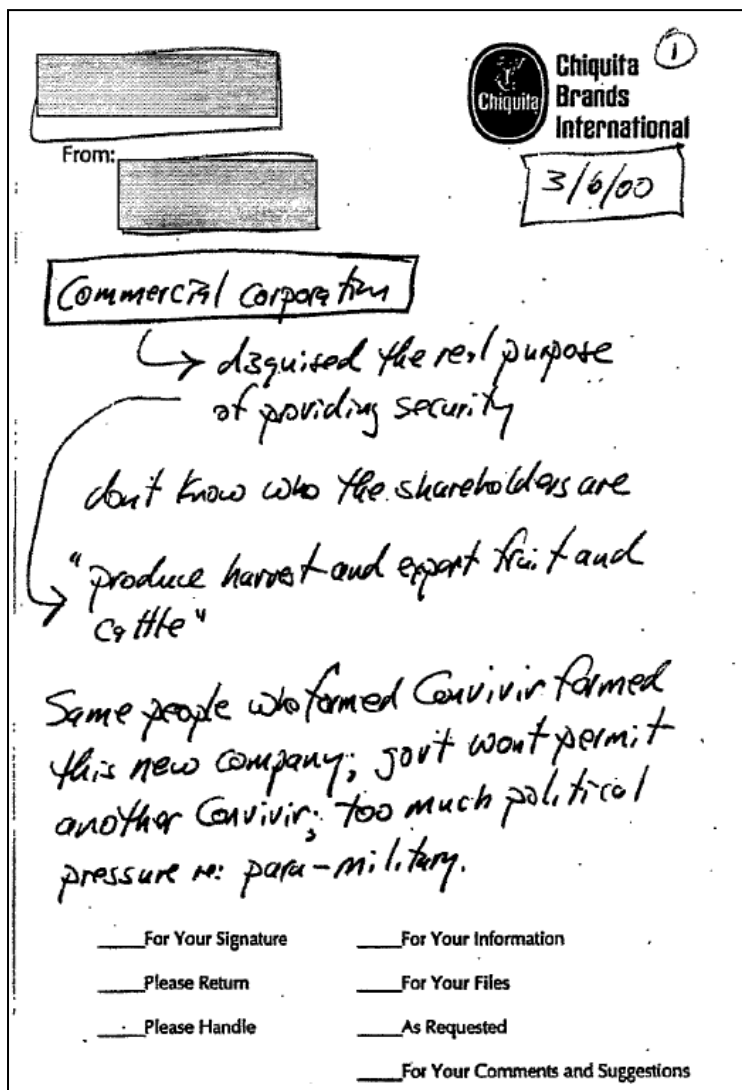 1
Chiquita
Chiquita
Brands
International
From:
3/6/00
Commercial Corporation
disguised the real purpose
of providing security
don't know who the shareholders are
"produce harvest and export fruit and
cattle"
Same people who formed Convivir formed
this new company; gov't wont permit
another Convivir; too much political
pressure re: para-military.
For Your Signature
For Your Information
Please Return
For Your Files
Please Handle
As Requested
For Your Comments and Suggestions